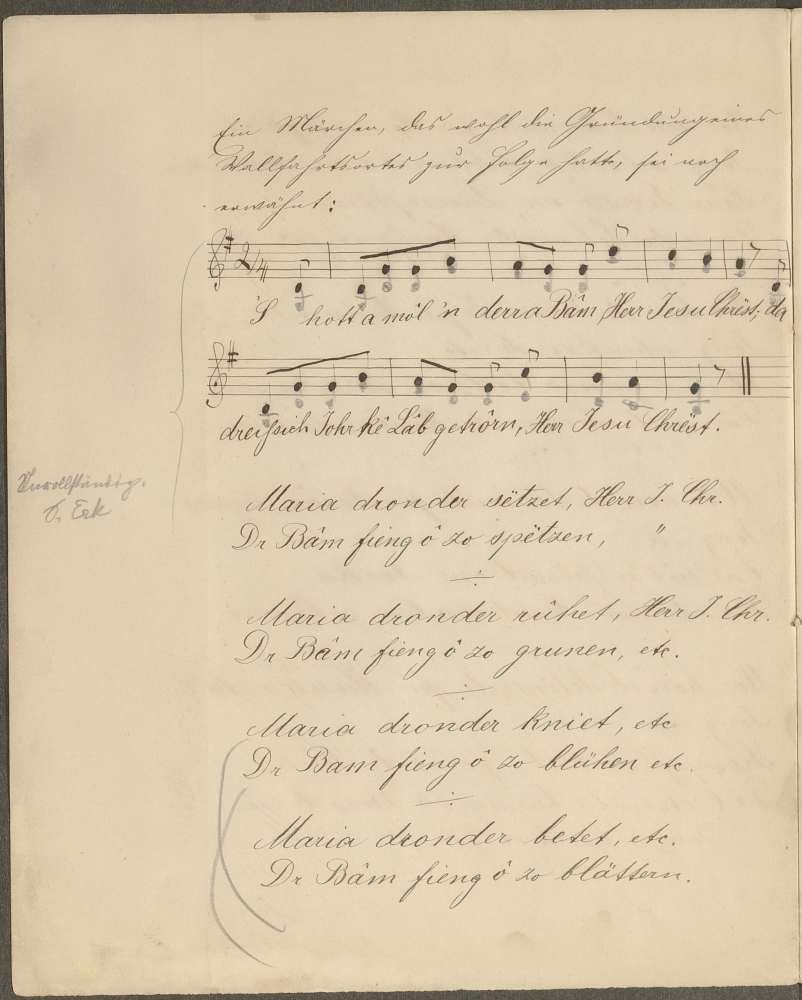 Ein Märchen, das wohl die Gründung eines
Wallfahrtsortes zur Folge hatte, sei noch
erwähnt:
2/4
'S hott a möl 'n derra Bâm, Herr Jesu Chrëst, da
dreißich Johr kê Lâb getrôrn, Herr Jesu Chrëst.
Unvollständig.
S. Erk
Maria dronder sëtzet, Herr J. Chr.
Dr Bâm fieng ô zo spëtzen, "
Maria dronder rûhet, Herr J. Chr.
Dr Bâm fieng ô zo grunen, etc.
Maria dronder kniet, etc
Dr Bam fieng ô zo blühen etc.
Maria dronder betet, etc.
Dr Bâm fieng ô zo blättern.